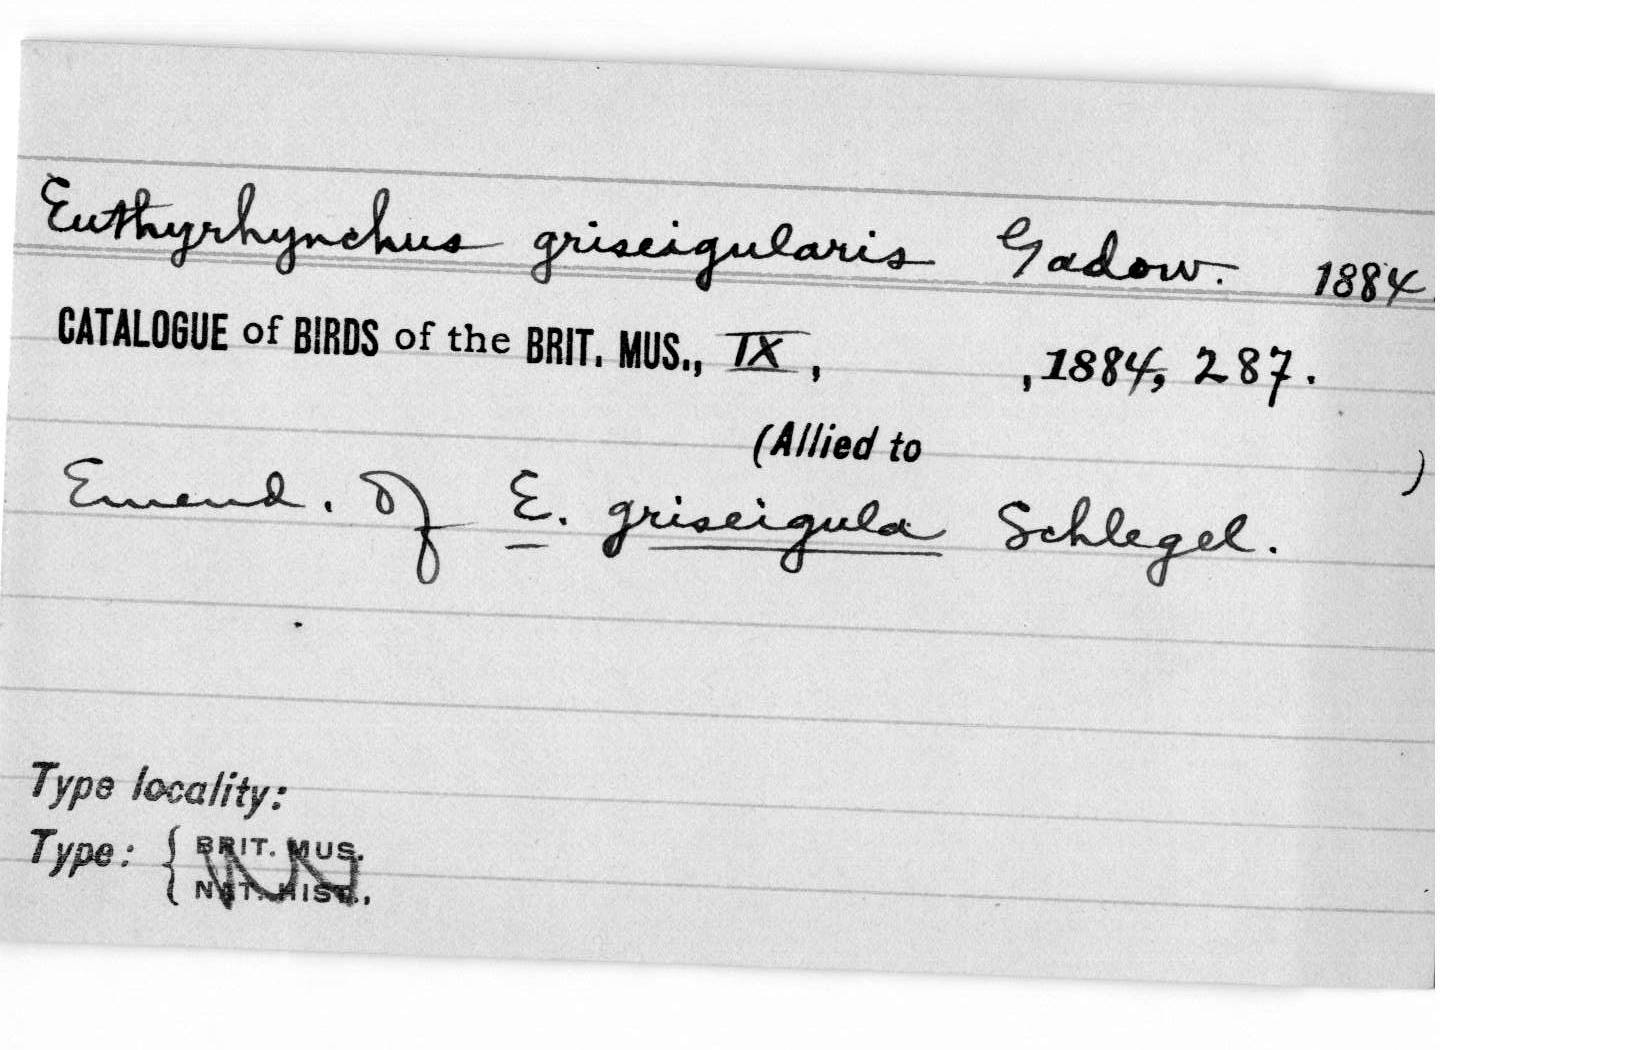 Euthyrhynchus griseigularis Gadow. 1884.
CATALOGUE of BIRDS of the BRIT. MUS., IX, , 1884, 287.
(Allied to )
Emend. of E. griseigula Schlegel.
Type locality:
Type: { BRIT. MUS.
NAT. HIST.,